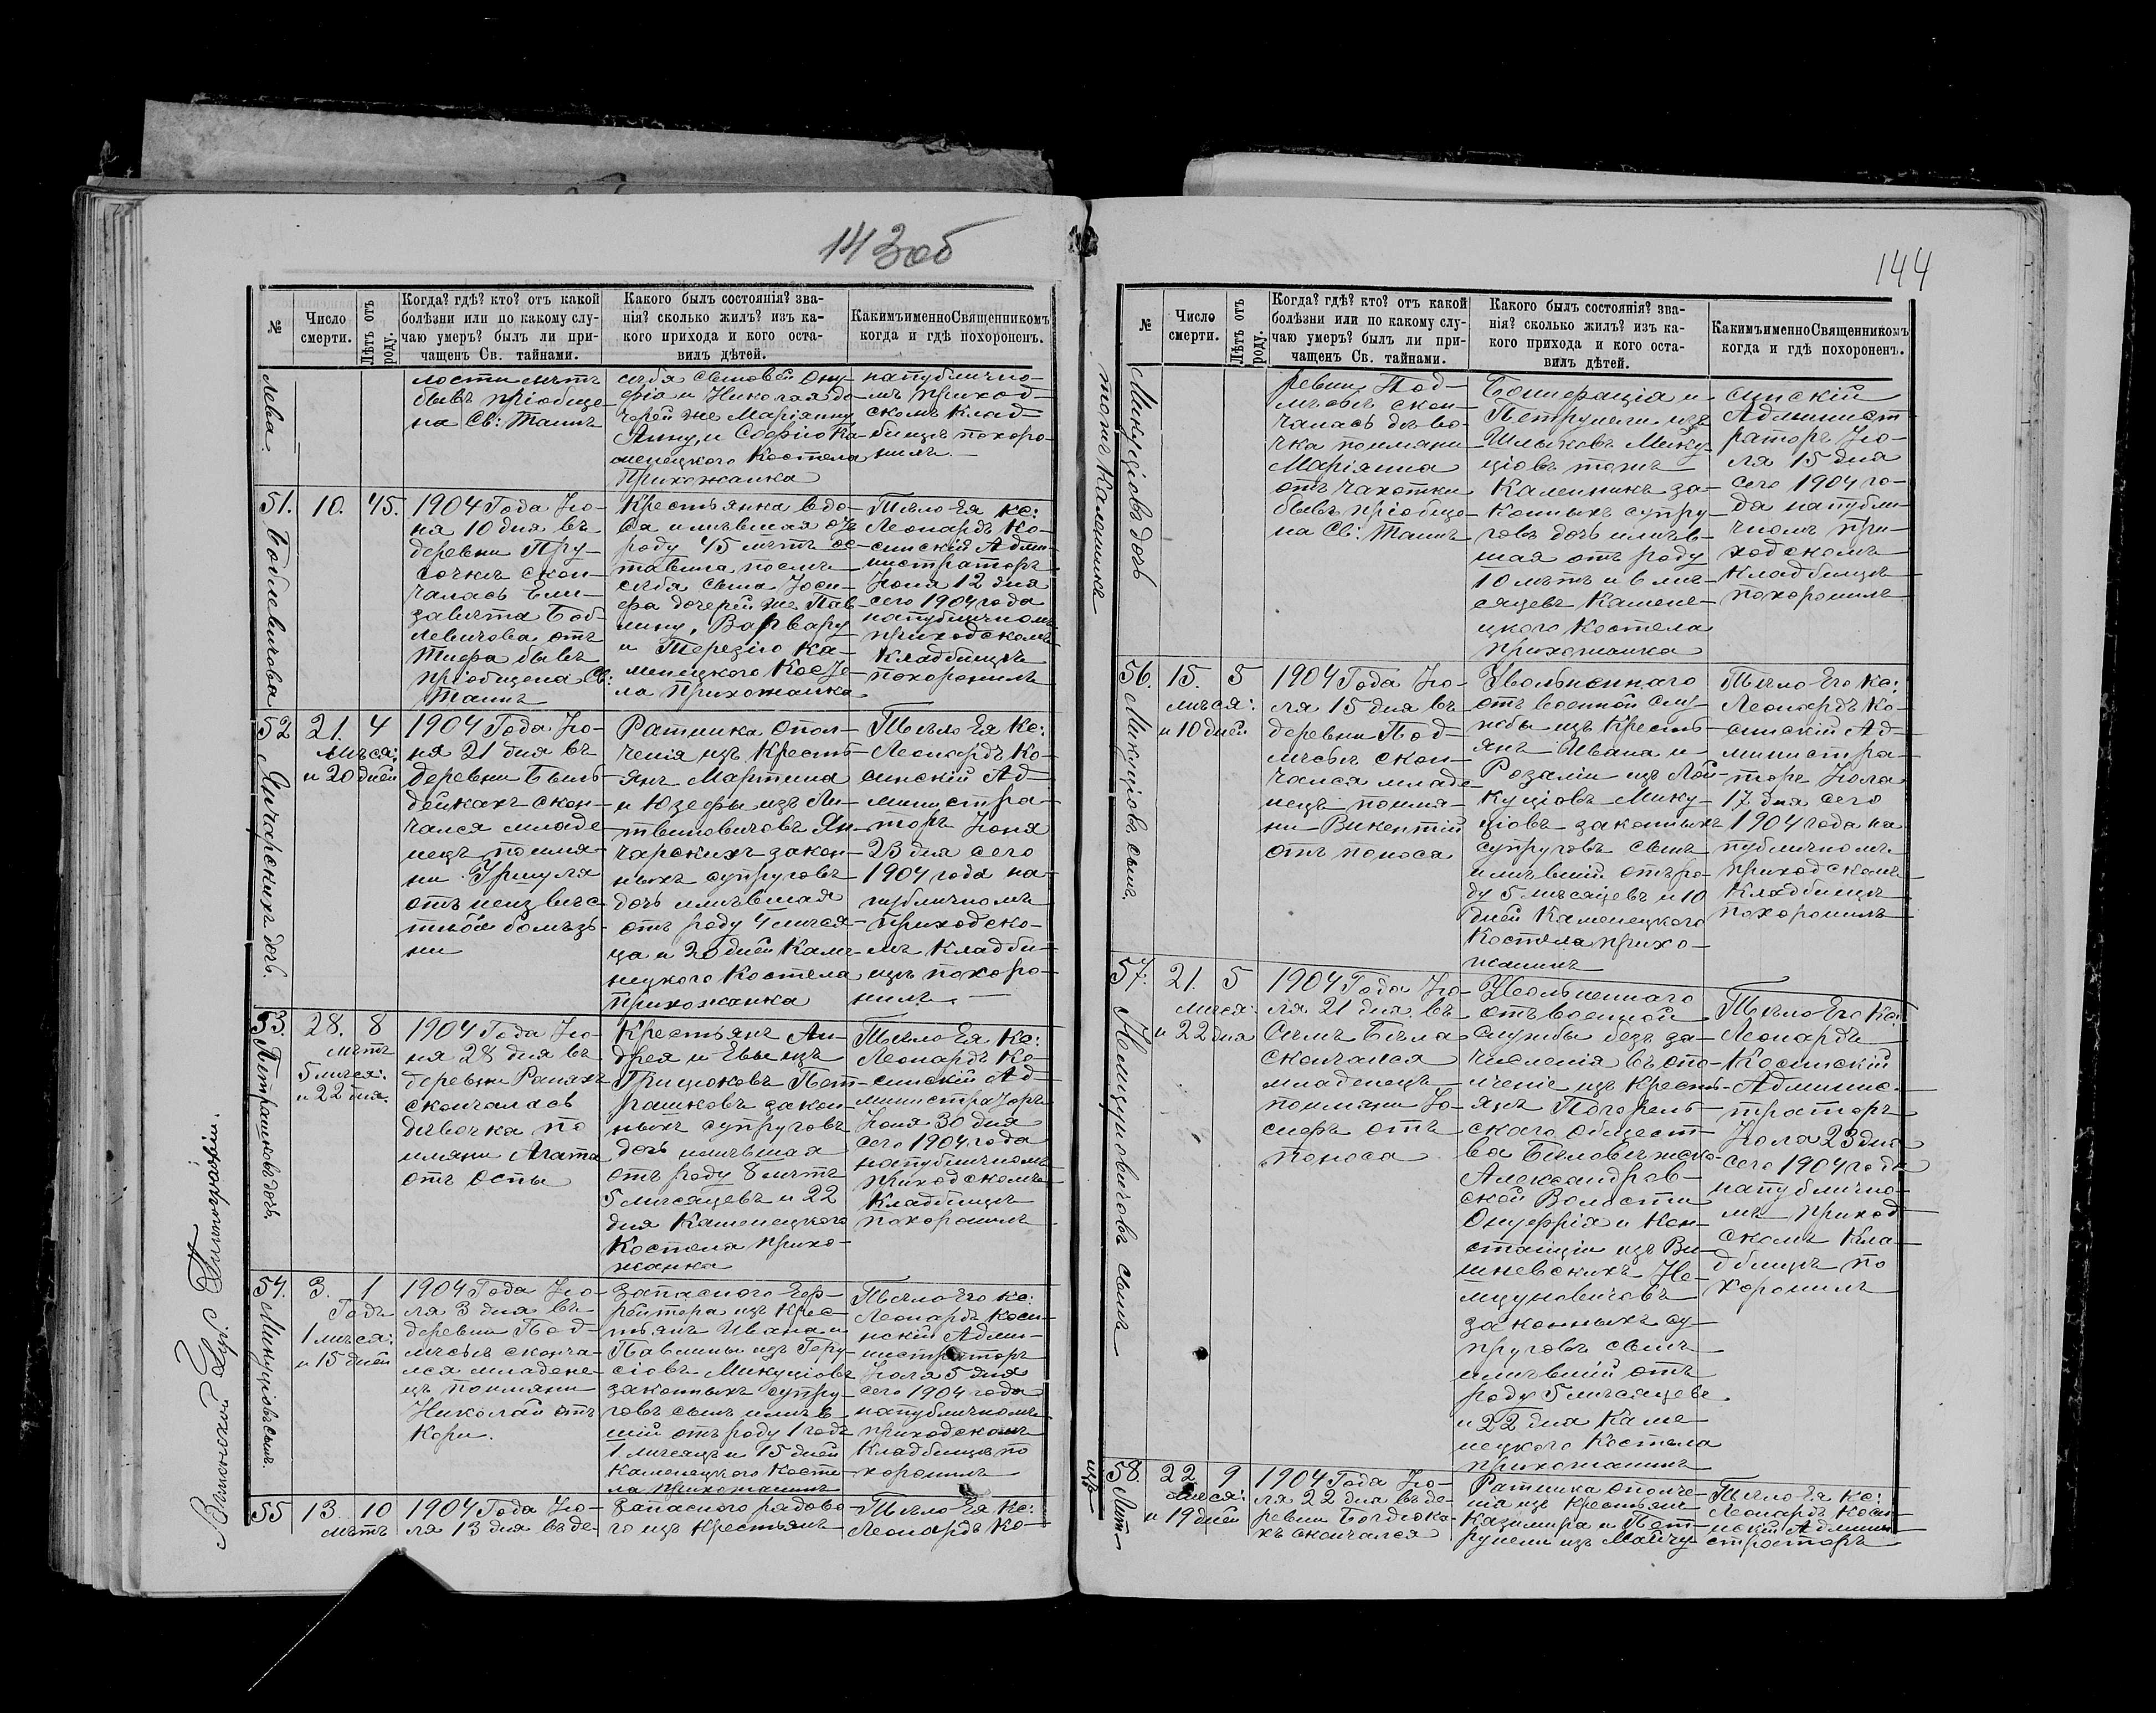 143об
№
Число смерти.
Лѣтъ отъ роду.
Когда? гдѣ? кто? отъ какой
болѣзни или по какому слу-
чаю умеръ? былъ ли при-
чащенъ Св. тайнами.
Какого былъ состоянія? зва-
нія? сколько жилъ? изъ ка-
кого прихода и кого оста-
вилъ дѣтей.
КакимъименноСвященникомъ
когда и гдѣ похороненъ.
лева.
лости лѣтъ
бывъ пріобще
на Св: Таинъ
себя сыновей Ону-
фрія и Николая до
черей же Маріанну
Анну, и Софію Ка-
менецкого Костела
Прихожанка
на публично-
мъ приход-
скомъ клад-
бищѣ похоро-
нилъ. —
51.
Бобилевичова
10.
45.
1904 Года Ію-
ня 10 дня въ
деревни Пру-
сочкѣ скон-
чалась Ели-
завета Боб
левичова отъ
Тифа бывъ
пріобщена Св:
Таинъ
Крестьянка вдо-
ва имѣвшая отъ
роду 45 лѣтъ ос-
тавила послѣ
себя сына Іоси-
фа дочерей же Пав-
лину, Варвару
и Терезію Ка-
менецкого Косте-
ла Прихожанка
Тѣло Ея Кс:
Леонардъ Ко-
синскій Адми-
нистраторъ
Іюня 12 дня
сего 1904 года
на публичномъ
приходскомъ
кладбищѣ
похоронилъ
52
Янчарскихъ дочь.
21.
4
мѣся:
и 20 дней
1904 Года Ію-
ня 21 дня въ
деревни Быль-
дейкахъ скон-
чался младе-
нецъ по имя-
ни Уршуля
отъ неизвѣс
тной болѣз-
ни
Ратника Опол-
ченія изъ Кресть-
янъ Мартина
и Юзефы изъ Ли-
твиновичовъ Ян-
чарскихъ закон-
ныхъ супруговъ
дочь имѣвшая
отъ роду 4 мѣся-
ца и 20 дней Каме
нецкого Костела
Прихожанка
Тѣло Ея Кс:
Леонардъ Ко-
синскій Ад-
министра-
торъ Іюня
23 дня сего
1904 года на
публичномъ
Приходско-
мъ Кладби-
щѣ похоро-
нилъ. —
53.
Петрашковъ дочь.
28.
8
лѣтъ
5 мѣся:
и 22 дня.
1904 Года Ію-
ня 28 дня въ
деревни Раняхъ
скончалась
дѣвочка по
имяни Агата
отъ Оспы
Крестьянъ Ан-
дрея и Евы изъ
Грицюковъ Пет-
рашковъ закон-
ныхъ супруговъ
дочь имѣвшая
отъ роду 8 лѣтъ
5 мѣсяцевъ и 22
дня Каменецкого
Костела прихо-
жанка
Тѣло Ея Кс:
Леонардъ Ко-
синскій Ад-
министраторъ
Іюня 30 дня
сего 1904 года
на публичномъ
приходскомъ
Кладбищѣ
похоронилъ
54.
Микуціовъ сынъ.
3.
1
Годъ
1 мѣся:
и 15 дней
1904 Года Ію-
ля 3 дня въ
деревни Под-
лѣсьѣ сконча-
лся младене-
цъ по имяни
Николай отъ
Кори.
Запасного Еф-
рейтера изъ Крес-
тьянъ Ивана и
Павлины изъ Геру-
сіовъ Микуціовъ
законныхъ супру-
говъ сынъ имѣв-
шій отъ роду 1 годъ
1 мѣсяцъ и 15 дней
Каменецкого Косте-
ла прихожанинъ
Тѣло Его Кс:
Леонардъ Коси-
нскій Адми-
нистраторъ
Іюля 5 дня
сего 1904 года
на публичномъ
приходскомъ
Кладбищѣ по
хоронилъ
55
13.
10
лѣтъ
1904 Года Ію-
ля 13 дня въ де-
Запасного рядово
го изъ Крестьянъ
Тѣло Ея Кс:
Леонардъ Ко-
144
№
Число смерти.
Лѣтъ отъ роду.
Когда? гдѣ? кто? отъ какой
болѣзни или по какому слу-
чаю умеръ? былъ ли при-
чащенъ Св. тайнами.
Какого былъ состоянія? зва-
нія? сколько жилъ? изъ ка-
кого прихода и кого оста-
вилъ дѣтей.
КакимъименноСвященникомъ
когда и гдѣ похороненъ.
Микуціовъ дочь
тожъ Калешникъ
ревни Под-
лѣсьѣ скон-
чалась дѣво-
чка по имяни
Маріанна
отъ Чахотки
бывъ пріобще-
на Св: Таинъ
Бонифація и
Петрунели изъ
Шлыковъ Мику-
ціовъ тожъ
Калешникъ за-
конныхъ супру-
говъ дочь имѣв-
шая отъ роду
10 лѣтъ и 6 мѣ-
сяцевъ Камене-
цкого Костела
прихожанка
синскій
Админист
раторъ Ію-
ля 15 дня
сего 1904 го-
да на публи-
чномъ при-
ходскомъ
Кладбищѣ
похоронилъ
56.
Микуціовъ сынъ.
15.
5
мѣся:
и 10 дней
1904 Года Ію-
ля 15 дня въ
деревни Под-
лѣсьѣ скон-
чался младе-
нецъ по имя-
ни Викентій
отъ поноса
Увольненнаго
отъ военной слу-
жбы изъ Кресть-
янъ Ивана и
Розаліи изъ
куціовъ Мику-
ціовъ законныхъ
супруговъ сынъ
имѣвшій отъ ро-
ду 5 мѣсяцевъ и 10
дней Каменецкого
Костела прихо-
жанинъ
Тѣло Его Кс:
Леонардъ Ко-
синскій Ад-
министра-
торъ Іюля
17 дня сего
1904 года на
публичномъ
приходскомъ
Кладбищѣ
похоронилъ
57.
Немцуновичовъ сынъ
21.
5
мѣся:
и 22 дня
1904 Года Ію-
ля 21 дня въ
Селѣ Бѣла
скончался
младенецъ
по имяни Іо-
сифъ отъ
поноса
Увольненнаго
отъ военной
службы безъ за-
численія въ опо-
лченіе изъ Кресть-
янъ Погорель-
скаго общест-
ва Бѣловежско-
Александров-
ской Волости
Онуфрія и Кон-
станціи изъ Ви-
шневскихъ Не-
мцуновичовъ
законныхъ су-
пруговъ сынъ
имѣвшій отъ
роду 5 мѣсяцевъ
и 22 дня Каме-
нецкого Костела
прихожанинъ
Тѣло Его Кс:
Леонардъ
Косинскій
Админис-
траторъ
Іюля 23 дня
сего 1904 года
на публично-
мъ приход
скомъ Кла-
дбищѣ по
хоронилъ
58.
Лит
22
9
мѣся:
и 19 дней
1904 Года Ію-
ля 22 дня въ де-
ревни Богдюка-
хъ скончался
Ратника ополче-
нія изъ Крестьянъ
Казимира и Пет-
рунели изъ Майчу
Тѣло Ея Кс:
Леонардъ Коси-
нскій Админи-
страторъ
Типографіи.